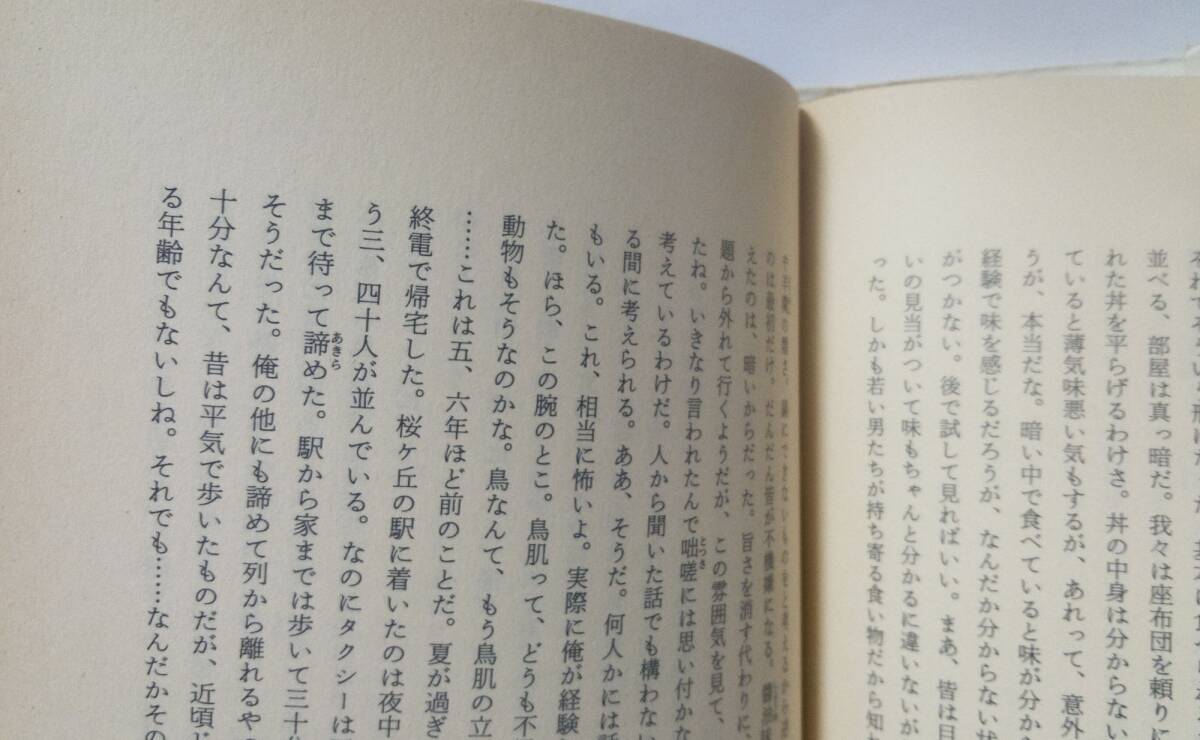 並べる、部屋は真っ暗だ。我々は座布団を頼りに
れた丼を平らげるわけさ。丼の中身は分からない
ていると薄気味悪い気もするが、あれって、意外
うが、本当だな。暗い中で食べていると味が分か
経験で味を感じるだろうが、なんだか分からない状
がつかない。後で試して見ればいい。まあ、皆は目
いの見当がついて味もちゃんと分かるに違いないが
った。しかも若い男たちが持ち寄る食い物だから知
のは最初だけ。だんだん皆が不機嫌になる。
えたのは、暗いからだった。旨さを消す代わりに、
題から外れて行くようだが、この雰囲気を見て、
たね。いきなり言われたんで咄嗟には思い付かな
とっさ
考えているわけだ。人から聞いた話でも構わない
る間に考えられる。ああ、そうだ。何人かには話
もいる。これ、相当に怖いよ。実際に俺が経験
た。ほら、この腕のとこ。鳥肌って、どうも不
動物もそうなのかな。鳥なんて、もう鳥肌の立
……これは五、六年ほど前のことだ。夏が過ぎ
終電で帰宅した。桜ヶ丘の駅に着いたのは夜中
う三、四十人が並んでいる。なのにタクシーは
まで待って諦めた。駅から家までは歩いて三十
あきら
そうだった。俺の他にも諦めて列から離れるや
十分なんて、昔は平気で歩いたものだが、近頃
る年齢でもないしね。それでも……なんだかその